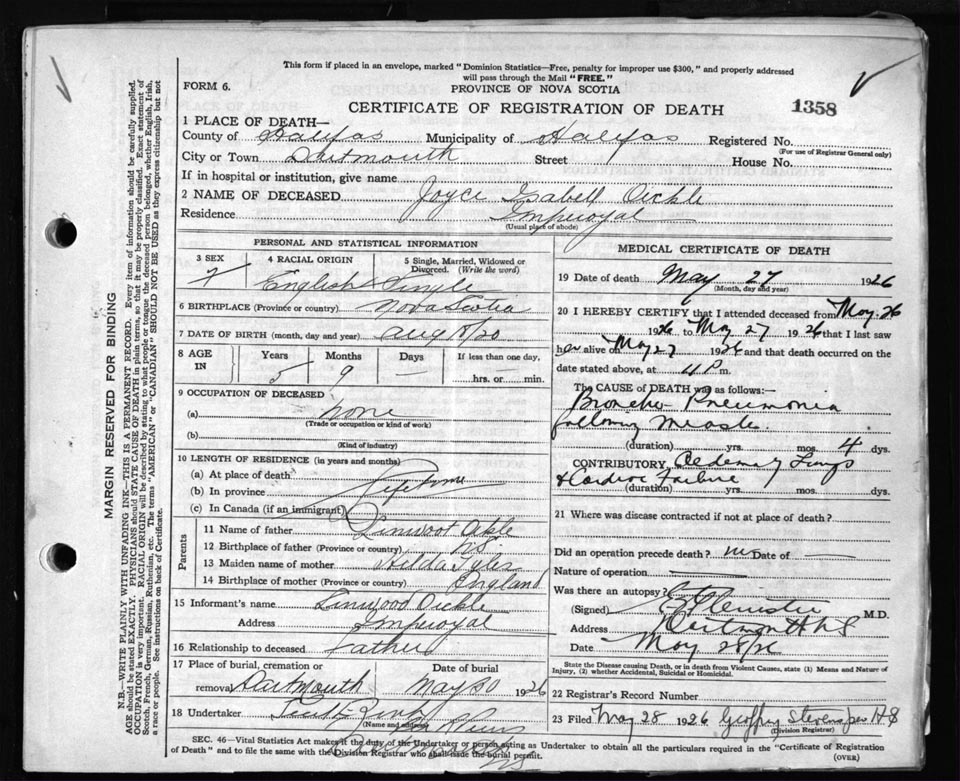 This form if placed in an envelope, marked "Dominion Statistics—Free, penalty for improper use $300," and properly addressed
will pass through the Mail "FREE."
FORM 6.
PROVINCE OF NOVA SCOTIA
CERTIFICATE OF REGISTRATION OF DEATH
1358
1 PLACE OF DEATH—
County of Halifax Municipality of Halifax Registered No.
(For use of Registrar General only)
City or Town Dartmouth Street House No.
If in hospital or institution, give name
2 NAME OF DECEASED Joyce Isabell Oickle
Residence Imperoyal
(Usual place of abode)
PERSONAL AND STATISTICAL INFORMATION
3 SEX 4 RACIAL ORIGIN 5 Single, Married, Widowed or Divorced. (Write the word)
F English Single
6 BIRTHPLACE (Province or country) Nova Scotia
7 DATE OF BIRTH (month, day and year) Aug 8/20
8 AGE IN Years Months Days If less than one day,
5 9 — hrs. or min.
9 OCCUPATION OF DECEASED
(a) none
(Trade or occupation or kind of work)
(b)
(Kind of industry)
10 LENGTH OF RESIDENCE (in years and months)
(a) At place of death
(b) In province Life Time
(c) In Canada (if an immigrant)
Parents
11 Name of father Linwoot Oickle
12 Birthplace of father (Province or country) NS
13 Maiden name of mother Hilda
14 Birthplace of mother (Province or country) England
15 Informant's name Linwood Oickle
Address Imperoyal
16 Relationship to deceased Father
17 Place of burial, cremation or Date of burial
removal Dartmouth May 30 1926
18 Undertaker
(Name and address)
MEDICAL CERTIFICATE OF DEATH
19 Date of death May 27 1926
(Month, day and year)
20 I HEREBY CERTIFY that I attended deceased from May 26
1926 to May 27 1926 that I last saw
her alive on May 27 1926 and that death occurred on the
date stated above, at 4 P m.
The CAUSE of DEATH was as follows:—
Broncho-Pneumonia
following Measles
(duration) yrs. mos. 4 dys.
CONTRIBUTORY Oedema of Lungs
& Cardiac Failure
(duration) yrs. mos. dys.
21 Where was disease contracted if not at place of death?
Did an operation precede death? no Date of —
Nature of operation
Was there an autopsy?
(Signed) M.D.
Address Dartmouth NS
Date May 28/26
State the Disease causing Death, or in death from Violent Causes, state (1) Means and Nature of
Injury, (2) whether Accidental, Suicidal or Homicidal.
22 Registrar's Record Number
23 Filed May 28 1926 Geoffrey Stevens per HS
(Division Registrar)
SEC. 46—Vital Statistics Act makes it the duty of the Undertaker or person acting as Undertaker to obtain all the particulars required in the "Certificate of Registration
of Death" and to file the same with the Division Registrar who shall issue the burial permit.
(OVER)
MARGIN RESERVED FOR BINDING
N.B.—WRITE PLAINLY WITH UNFADING INK—THIS IS A PERMANENT RECORD. Every item of information should be carefully supplied.
AGE should be stated EXACTLY. PHYSICIANS should STATE CAUSE OF DEATH in plain terms, so that it may be properly classified. Exact statement of
OCCUPATION is very important. RACIAL ORIGIN will be described by stating to what people or tongue the deceased person belonged, whether English, Irish,
Scotch, French, German, Russian, Ruthenian, etc. The terms "AMERICAN" or "CANADIAN" SHOULD NOT BE USED as they express citizenship but not
a race or people. See instructions on back of Certificate.